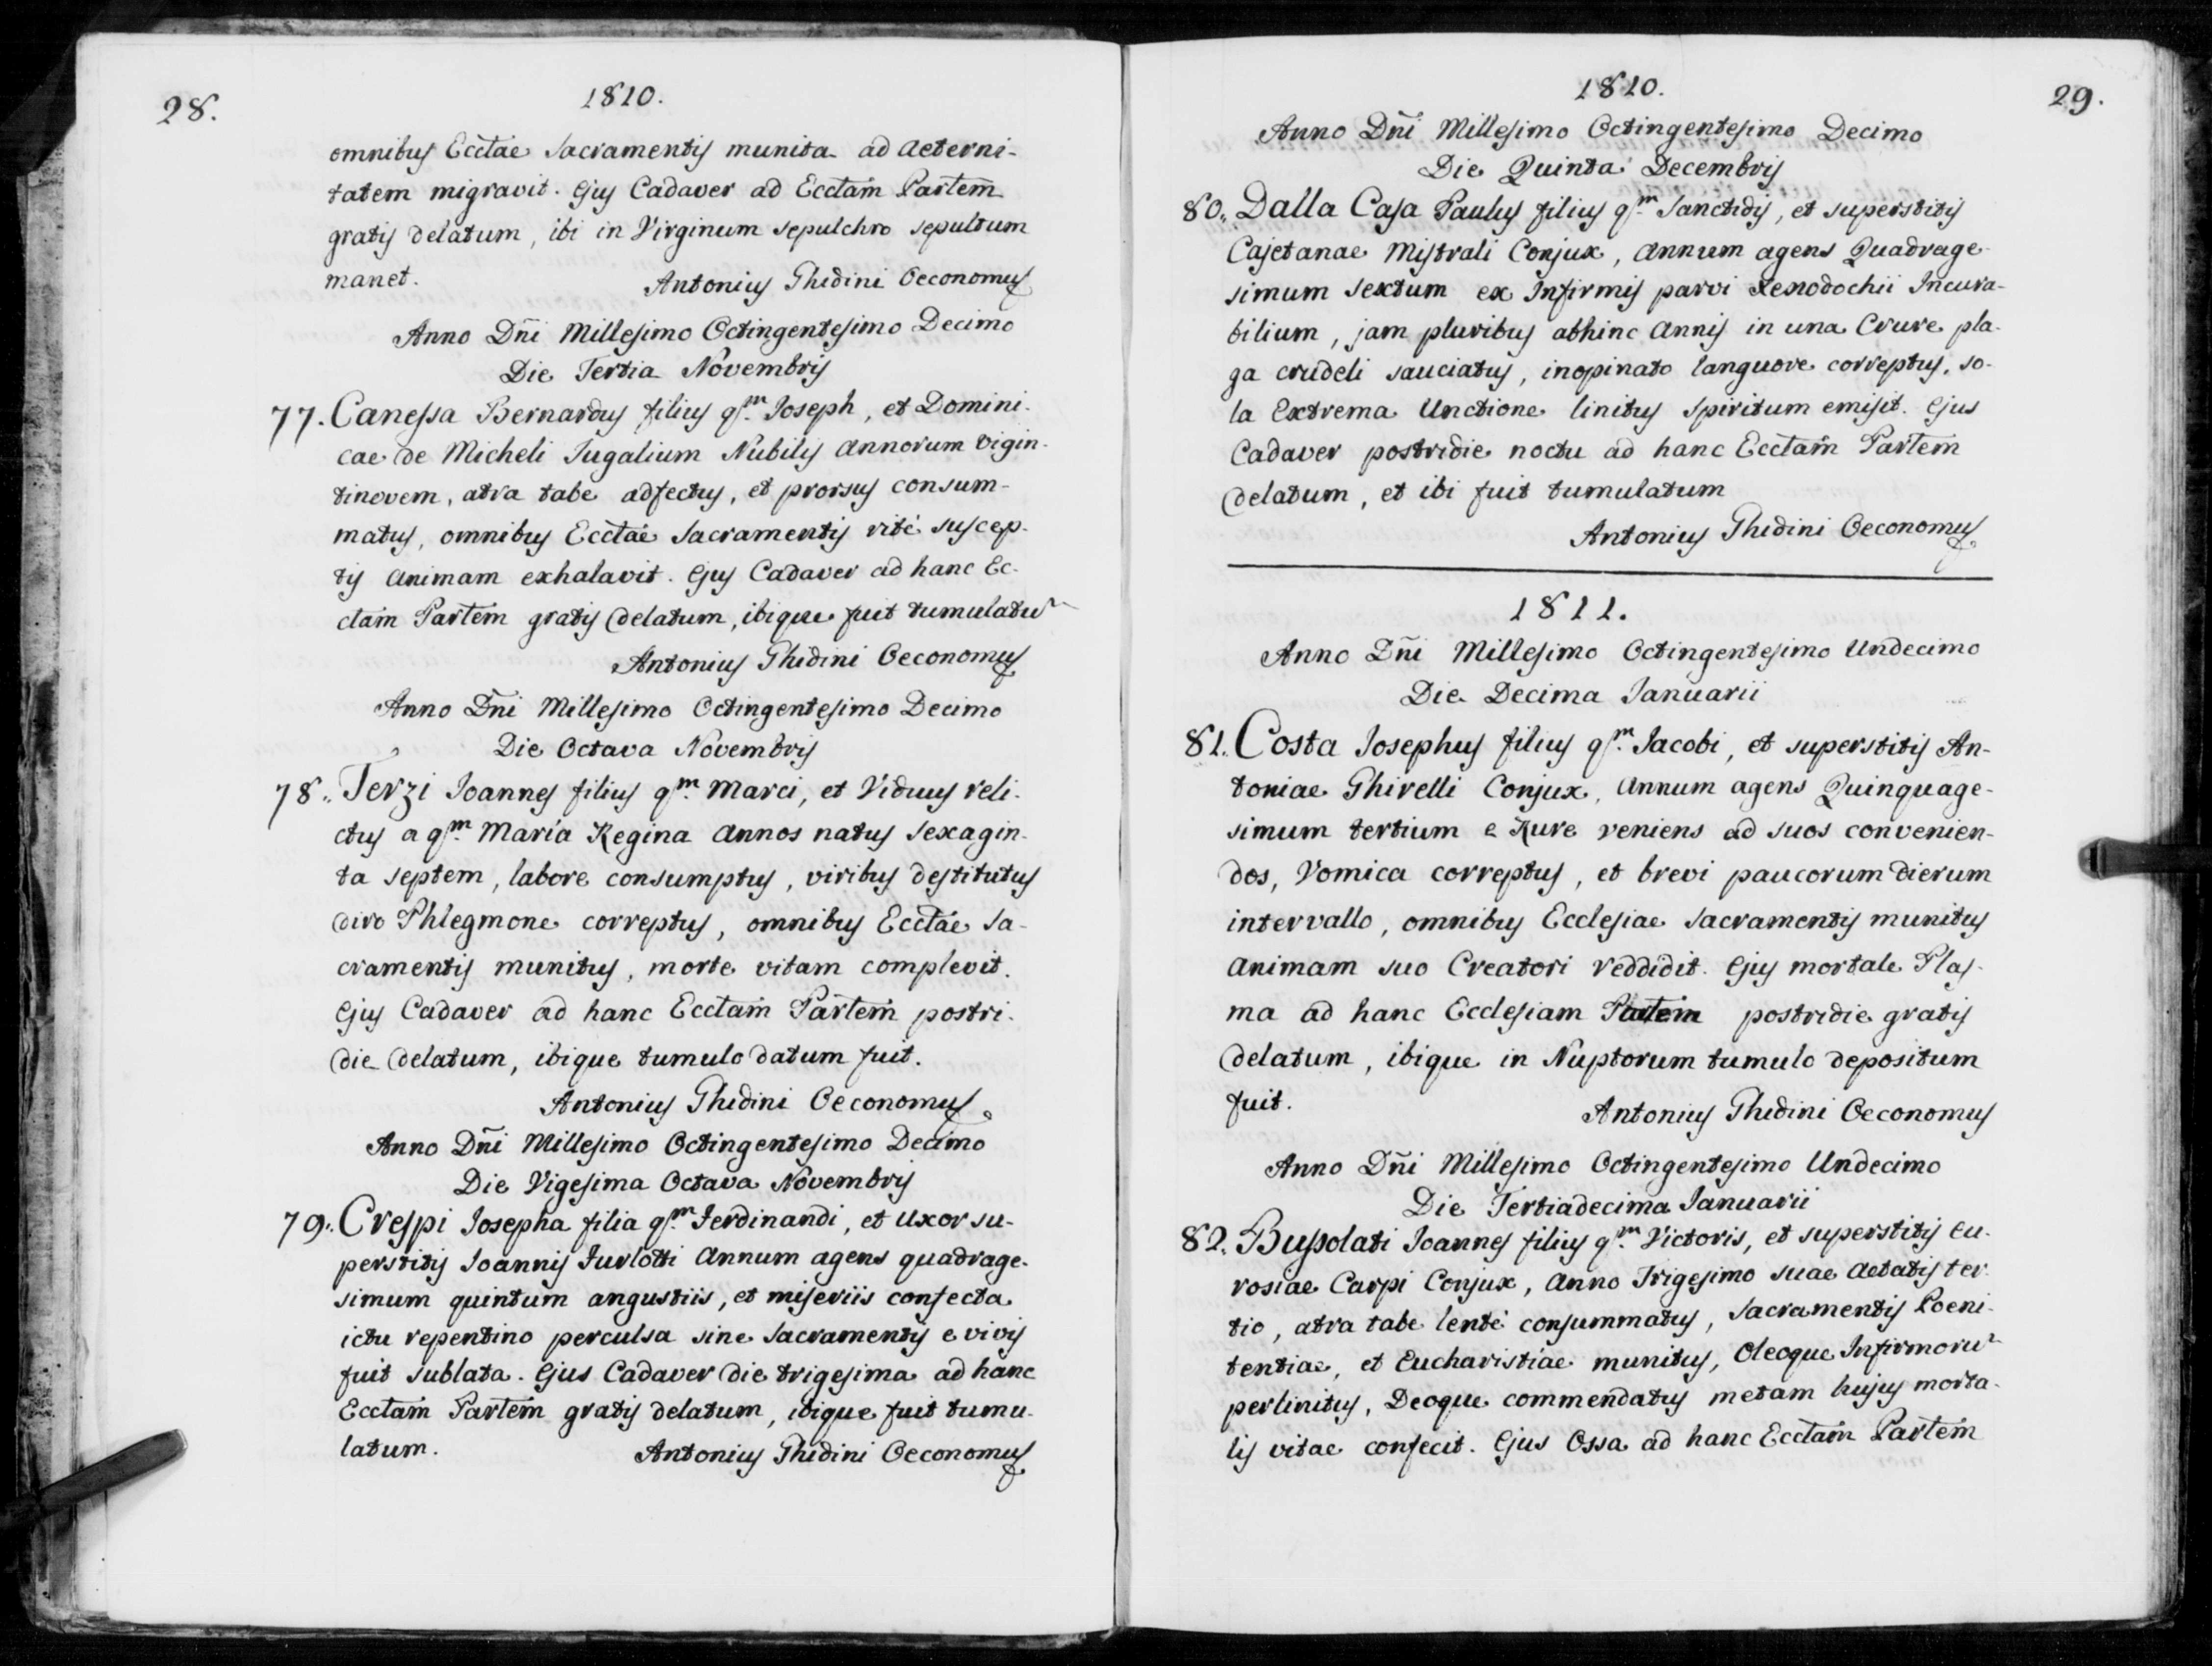 28.
1810.
omnibus Ecctae Sacramentis munita ad Aeterni-
tatem migravit. Ejus Cadaver ad Ecctam Partem
gratis delatum, ibi in Virginum sepulchro sepultum
manet. Antonius Ghidini Oeconomus
Anno Dñi Millesimo Octingentesimo Decimo
Die Tertia Novembris
77. Canessa Bernardus filius qm. Joseph, et Domini-
cae de Micheli Jugalium Nubilis Annorum Vigin-
tinovem, atra tabe adfectus, et prorsus consum-
matus, omnibus Ecctae Sacramentis rité suscep-
tis Animam exhalavit. Ejus Cadaver ad hanc Ec-
ctam Partem gratis delatum, ibique fuit tumulatu~
Antonius Ghidini Oeconomus
Anno Dñi Millesimo Octingentesimo Decimo
Die Octava Novembris
78.. Terzi Joannes filius qm. Marci, et Viduus reli-
ctus a qm. Maria Regina Annos natus Sexagin-
ta septem, labore consumptus, viribus destitutus
diro Phlegmone correptus, omnibus Ecctae Sa-
cramentis munitus, morte vitam complevit.
Ejus Cadaver ad hanc Ecctam Partem postri-
die delatum, ibique tumulo datum fuit.
Antonius Ghidini Oeconomus.
Anno Dñi Millesimo Octingentesimo Decimo
Die Vigesima Octava Novembris
79.. Crespi Josepha filia qm. Ferdinandi, et Uxor su-
perstitis Joannis Furlotti Annum agens quadrage-
simum quintum angustiis, et miseriis confecta
ictu repentino perculsa sine Sacramentis e vivis
fuit sublata. Ejus Cadaver die trigesima ad hanc
Ecctam Partem gratis delatum, ibique fuit tumu-
latum. Antonius Ghidini Oeconomus
1810.
29.
Anno Dñi Millesimo Octingentesimo Decimo
Die Quinta Decembris
80.. Dalla Casa Paulus filius qm. Sanctidis, et superstitis
Cajetanae Mistrali Conjux, Annum agens Quadrage-
simum sextum ex Infirmis parvi Xenodochii Incura-
bilium, jam pluribus abhinc Annis in una Crure pla-
ga crudeli sauciatus, inopinato languore correptus, so-
la Extrema Unctione linitus Spiritum emisit. Ejus
Cadaver postridie noctu ad hanc Ecctam Partem
delatum, et ibi fuit tumulatum
Antonius Ghidini Oeconomus
1811.
Anno Dñi Millesimo Octingentesimo Undecimo
Die Decima Januarii
81.. Costa Josephus filius qm. Jacobi, et superstitis An-
toniae Ghirelli Conjux, Annum agens Quinquage-
simum tertium e Rure veniens ad suos convenien-
dos, Vomica correptus, et brevi paucorum dierum
intervallo, omnibus Ecclesiae Sacramentis munitus
Animam suo Creatori reddidit. Ejus mortale Plas-
ma ad hanc Ecclesiam Partem postridie gratis
delatum, ibique in Nuptorum tumulo depositum
fuit. Antonius Ghidini Oeconomus
Anno Dñi Millesimo Octingentesimo Undecimo
Die Tertiadecima Januarii
82. Bussolati Joannes filius qm. Victoris, et superstitis Eu-
rosiae Carpi Conjux, Anno Trigesimo suae Aetatis ter-
tio, atra tabe lenté consummatus, Sacramentis Poeni-
tentiae, et Eucharistiae munitus, Oleoque Infirmoru~
perlinitus, Deoque commendatus metam hujus morta-
lis vitae confecit. Ejus Ossa ad hanc Ecctam Partem